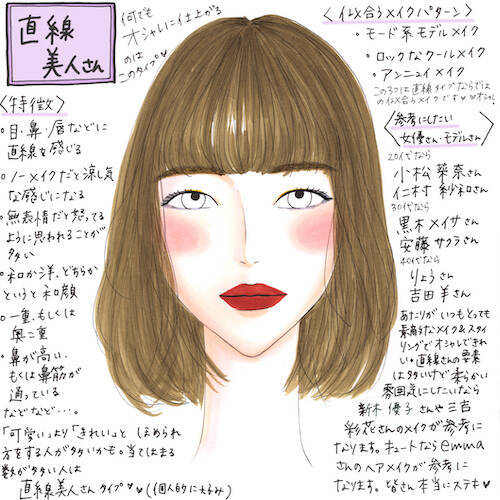 直線
美人さん
何でも
オシャレに仕上がる
のは
このタイプ♥
〈特徴〉
・目・鼻・唇などに
直線を感じる
・ノーメイクだと涼し気
な感じになる
・無表情だと怒ってる
ように思われることが
多い
・和か洋、どちらか
というと和顔
・一重、もしくは
奥二重
・鼻が高い、
もしくは鼻筋が
通っている
などなど・・・。
「可愛い」より「きれい」と ほめられ
方をする人が多いかも。当てはまる
数が多い人は
直線美人さん タイプ♥♥(個人的に好み)
〈似合うメイクパターン〉
・モード系モデルメイク
・ロックなクールメイク
・アンニュイメイク
この3つは直線タイプならでは
の似合うメイクです♥オシャレ
〈参考にしたい
女優さん・モデルさん〉
20代なら
小松菜奈さん
仁村紗和さん
30代なら
黒木メイサさん
安藤サクラさん
40代なら
りょうさん
吉田羊さん
あたりが いつもとっても
素敵なメイク&スタイ
リングで オシャレできれ
い。直線さんの要素
は多いけど 柔らかい
雰囲気にしたいなら
新木優子さんや三吉
彩花さんのメイクが参考に
なります。キュートならemma
さんのヘアメイクが参考に
なります。皆さん本当にステキ♥